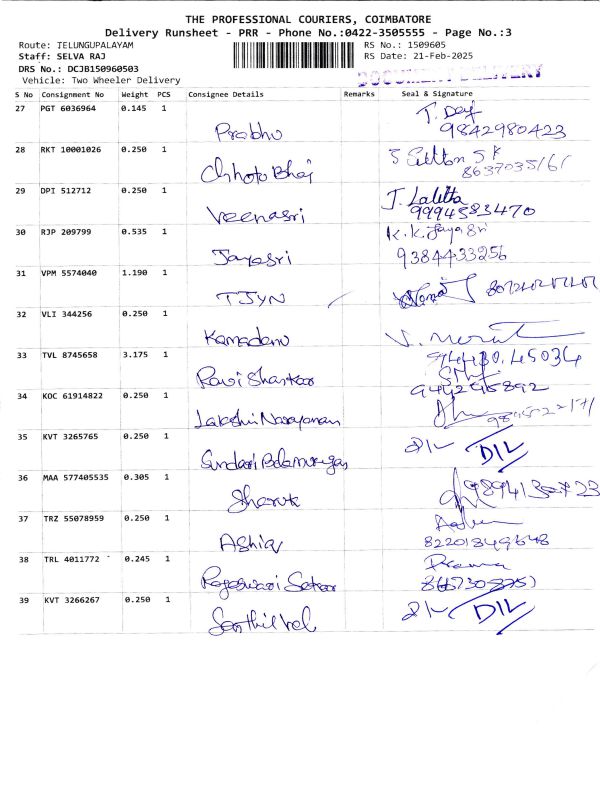 THE PROFESSIONAL COURIERS, COIMBATORE
Delivery Runsheet - PRR - Phone No.:0422-3505555 - Page No.:3
Route: TELUNGUPALAYAM RS No.: 1509605
Staff: SELVA RAJ RS Date: 21-Feb-2025
DRS No.: DCJB150960503
Vehicle: Two Wheeler Delivery
DOCUMENT DELIVERY
S No Consignment No Weight PCS Consignee Details Remarks Seal & Signature
27 PGT 6036964 0.145 1
Prabhu 9842980423
28 RKT 10001026 0.250 1
Chhoto Bhai
29 DPI 512712 0.250 1 J. Lalitha
Veenasri 9994583470
30 RJP 209799 0.535 1 K.K. Jayasri
Jayasri 9384433256
31 VPM 5574040 1.190 1
TJYN
32 VLI 344256 0.250 1
Kamadenu
33 TVL 8745658 3.175 1
Ravi Shankar
34 KOC 61914822 0.250 1 9442295892
Lakshmi Narayanan
35 KVT 3265765 0.250 1 DIL
Sundari Balamurugan
36 MAA 577405535 0.305 1
37 TRZ 55078959 0.250 1
Ashia 82201849648
38 TRL 4011772 0.245 1
Rajeswari Sekar
39 KVT 3266267 0.250 1 DIL
Senthilvel